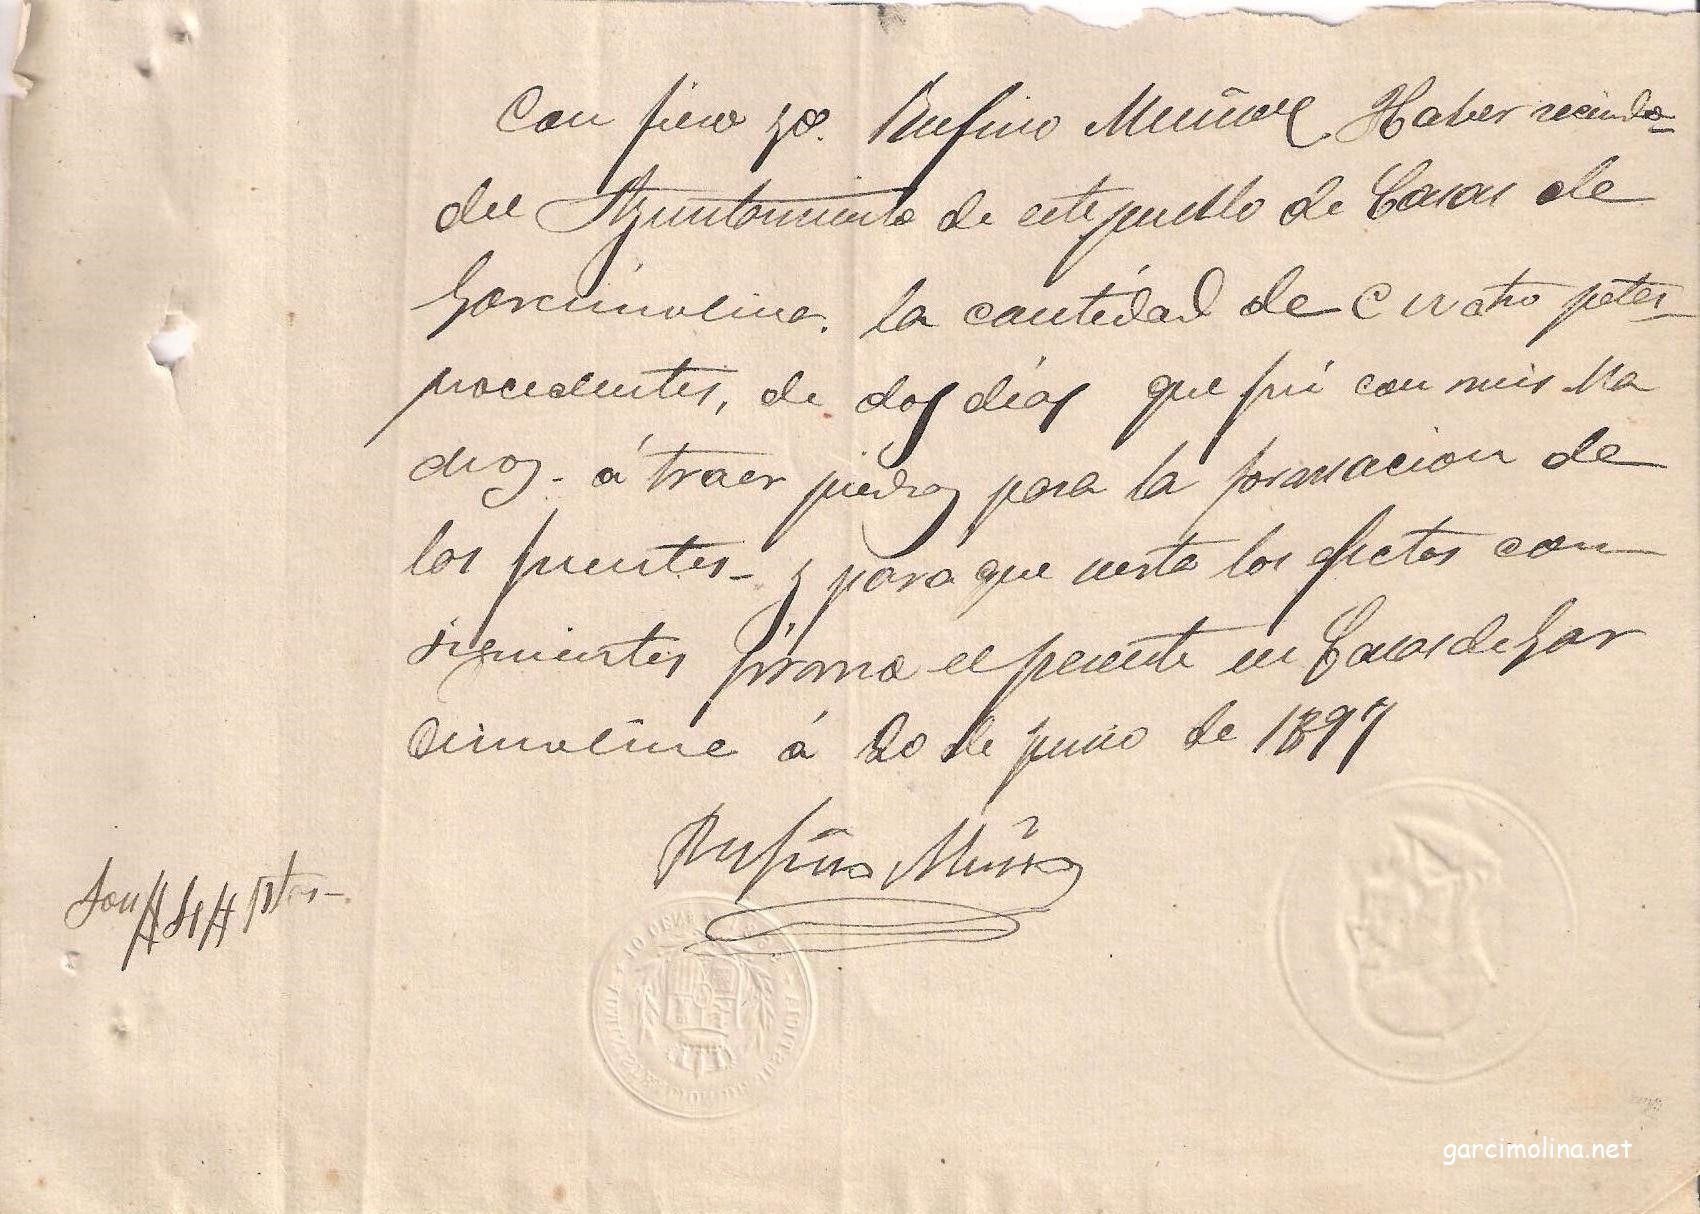 Confieso yo. Rufino Muñoz Haber recivido
del Ayuntamiento de este pueblo de Casas de
Garcimolina. la cantidad de Cuatro petas
procedentes, de dos días que fuí con mis Ma
chos- á traer piedras para la formacion de
los puentes- y para que surta los efectos con
siguientes firmo el presente en Casas de Gar
cimolina á 20 de Junio de 1897
Rufino Muñoz
Son # 4 # ptas-
garcimolina.net